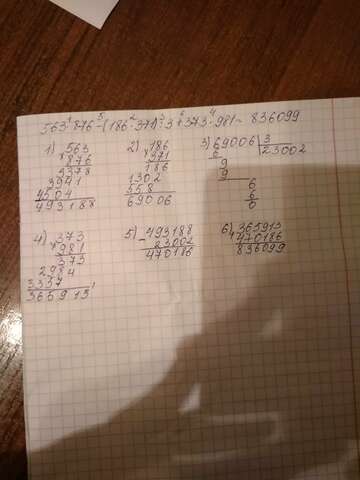 563·876-(186·371):3+373·981= 836099
1) 563
×876
3378
3941
4504
493188
2) 186
×371
186
1302
558
69006
3) 69006 3
6 23002
9
9
6
6
0
4) 373
×981
373
2984
3357
365913
5) -493188
23002
470186
6) +365913
470186
836099